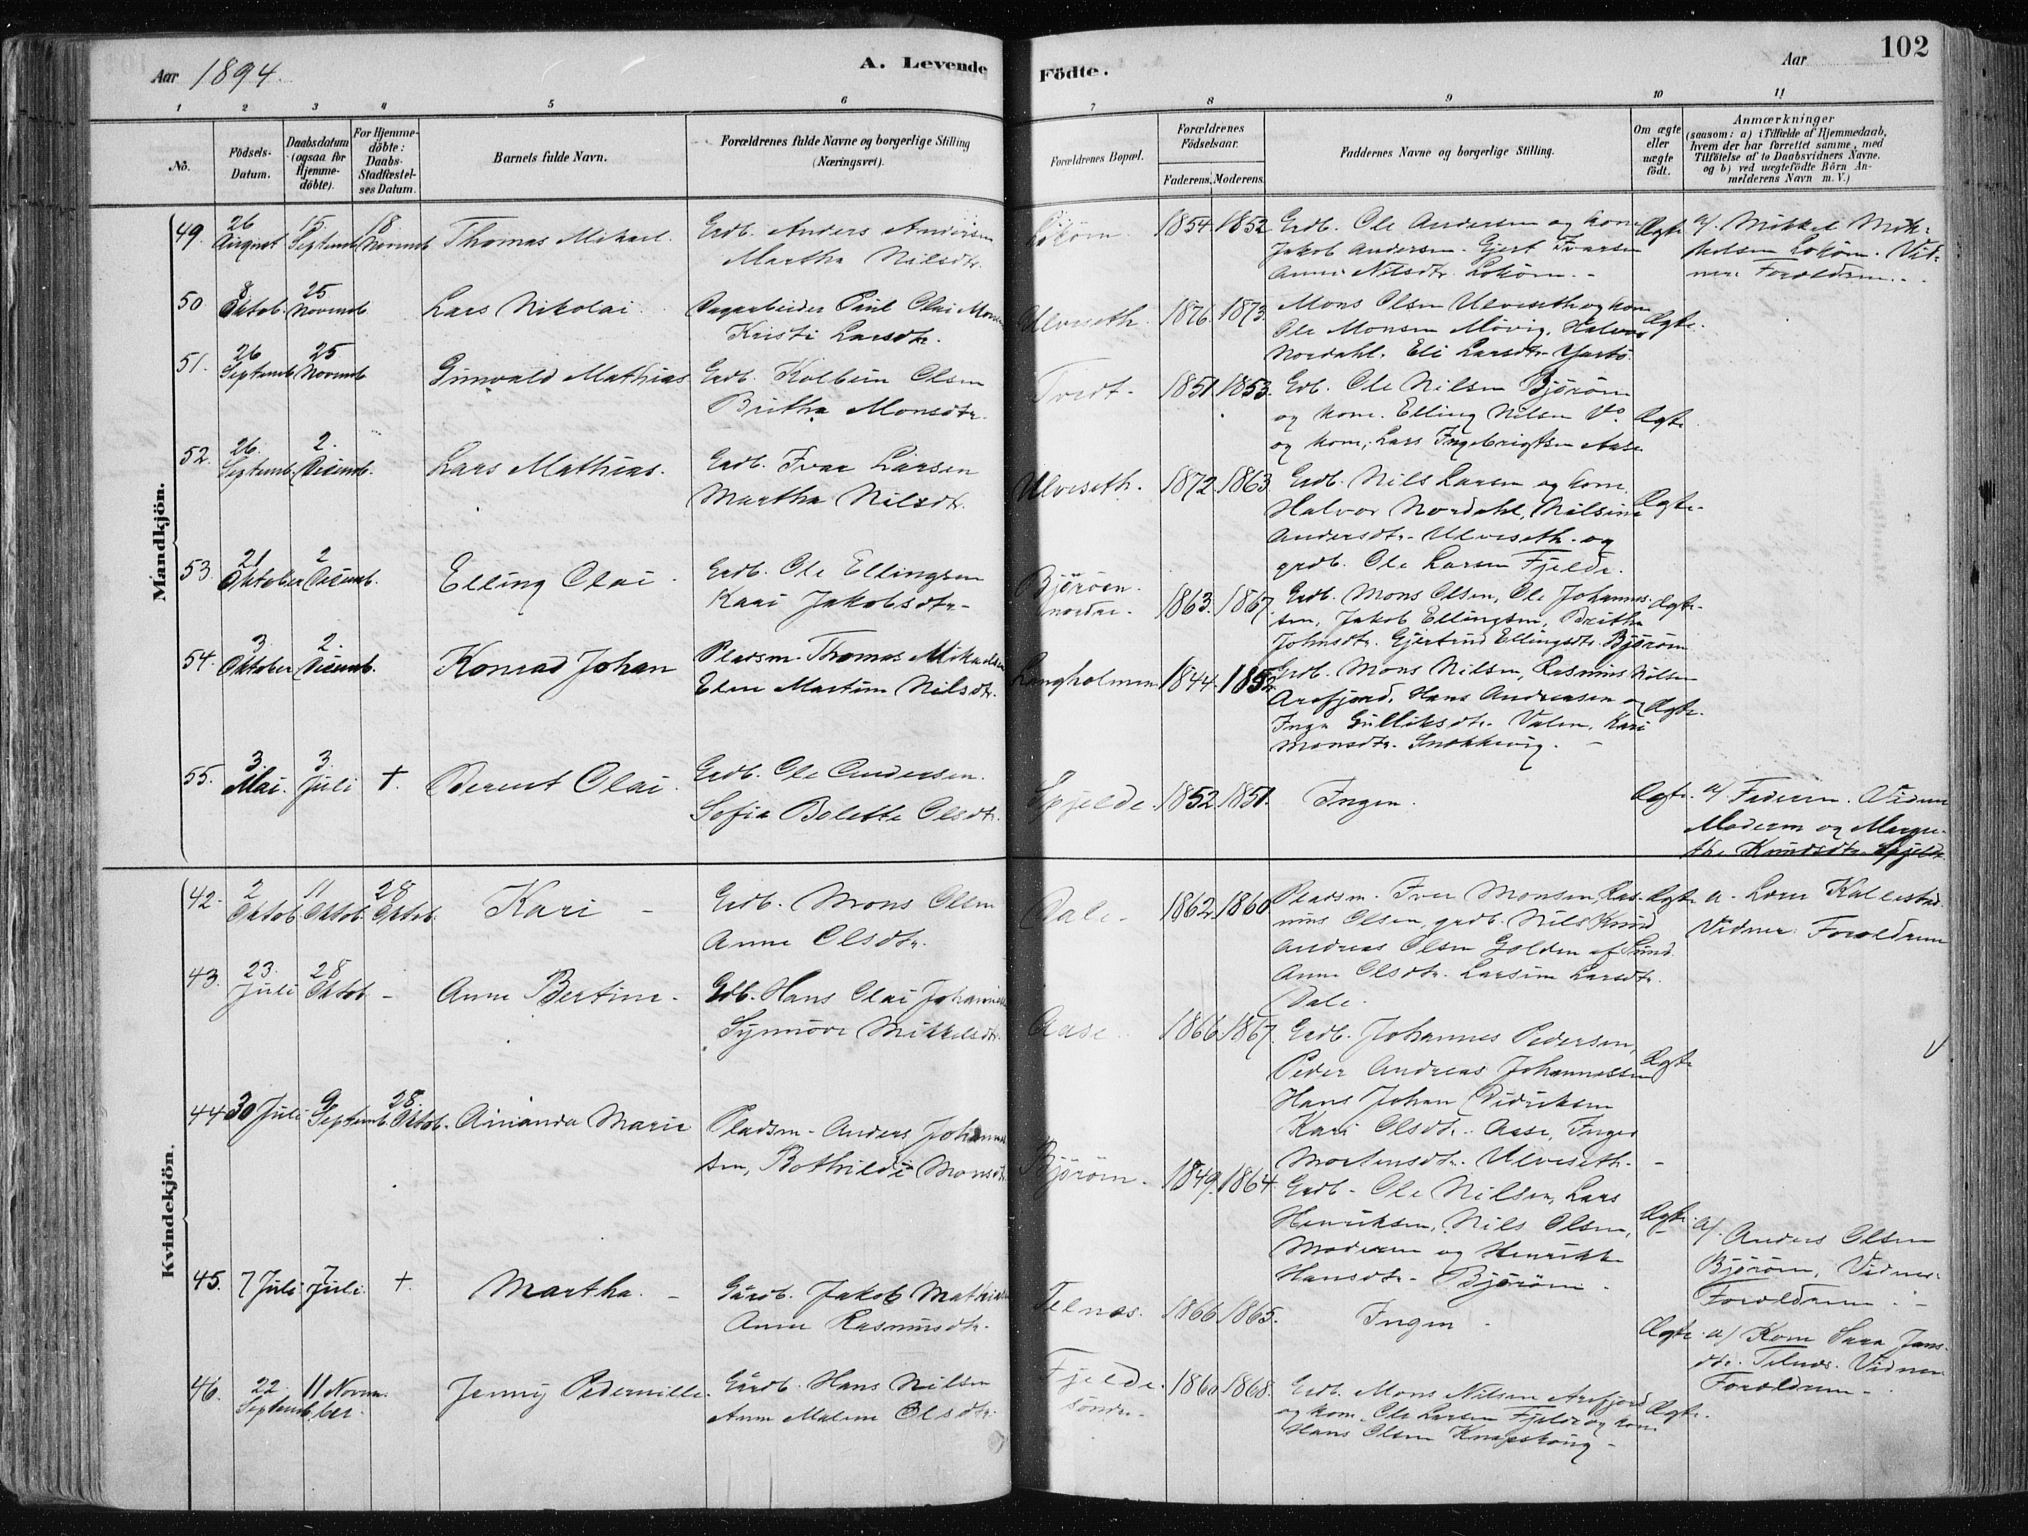 Aar 1894.
A. Levende Födte.
Aar
102
1 2 3 4 5 6 7 8 9 10 11
No.
Födsels-Datum.
Daabsdatum (ogsaa for Hjemme-döbte).
For Hjemme-döbte: Daabs-Stadfæstel-ses Datum.
Barnets fulde Navn.
Forældrenes fulde Navne og borgerlige Stilling (Næringsvei).
Forældrenes Bopæl.
Forældrenes Födselsaar.
Faderens. Moderens.
Faddernes Navne og borgerlige Stilling.
Om ægte eller uægte födt.
Anmærkninger
(saasom: a) i Tilfælde af Hjemmedaab, hvem der har forrettet samme, med Tilföielse af to Daabsvidners Navne. og b) ved uægtefödte Börn An-melderens Navn m. V.)
Mandkjön.
49. 26 August 15 Septemb 18 Novemb Thomas Mikael.
Grdb. Anders Andersen
Martha Nilsdtr.
Lokøen. 1854. 1852
Grdb. Ole Andersen og kone
Jakob Andersen. Gjert Ivarsen
Anna Nilsdtr. Lokøen.
Ægte
a/. Mikkel Mik-
kelsen Lokøen. Vid-
ner Forældrene.
50 8 Oktob. 25 Novemb Lars Nikolai.
Dagarbeider Paul Olai Monsen
Kristi Larsdtr.
Ulveseth. 1876. 1873.
Mons Olsen Ulveseth og kone
Ole Monsen Møvig. Halvor
Nordahl. Eli Larsdtr.
Ægte.
51. 26 Septemb. 25 Novemb Gunvald Mathias
Grdb. Kolbein Olsen
Britha Monsdtr.
Tvedt. 1851 1853.
Grdb. Ole Nilsen Bjørøen
og kone. Elling Nilsen
og kone, Lars Ingebrigtsen Aase
Ægte
52. 26. Septemb. 2. Decemb. Lars Mathias.
Grdb. Ivar Larsen
Martha Nilsdtr.
Ulveseth. 1872. 1863
Grdb. Nils Larsen og kone,
Halvor Nordahl, Nilsine
Andersdtr. Ulveseth og
grdb. Ole Larsen Fjelde.
Ægte.
53. 21 Oktober 2 Decemb. Elling Olai.
Grdb. Ole Ellingsen
Kari Jakobsdtr.
Bjørøen nordre. 1863. 1867.
Grdb. Mons Olsen, Ole Johannes-
sen, Jakob Ellingsen, Britha
Johnsdtr. Gjertrud Ellingsdtr. Bjørøen
Ægte.
54. 3 Oktober 2. Decemb. Konrad Johan
Pladsm. Thomas Mikaelsen
Elen Martine Nilsdtr.
Langholmen 1844. 1852
Grdb. Mons Nilsen, Rasmus Nilsen
Arefjord, Hans Andersen og
Inga Gulliksdtr. Valen, Kari
Monsdtr. Snekkevig.
Ægte.
55. 3. Mai. 3. Juli +. Berent Olai.
Grdb. Ole Andersen.
Sofia Bolette Olsdtr.
Spjelde. 1852 1851. Ingen.
Ægte.
a/ Faderen. Vidner
Moderen og Margre-
the Knudsdtr. Spjelde
Kvindekjön.
42. 2 Oktob. 11 Oktob. 28 Oktob. Kari
Grdb. Mons Olsen
Anne Olsdtr.
Dale. 1862 1860
Pladsm. Iver Monsen, Ras-
mus Olsen, grdb. Nils Knud
Andreas Olsen Golden af Sund
Anne Olsdtr. Larsine Larsdtr.
Dale.
Ægte
a. Lærer Kallestad.
Vidner. Forældrene
43. 23. Juli 28 Oktob - Anne Bertine.
Gdb. Hans Olai Johannes
Synnøve Mikkelsdtr.
Aase. 1866 1867.
Grdb. Johannes Pedersen,
Peder Andreas Johannessen
Hans Johan Didriksen
Kari Olsdtr. Aase, Inger
Mortensdtr. Ulveseth.
Ægte
44 30 Juli 9 Septemb. 28. Oktob. Amanda Marie
Pladsm. Anders Johannes-
sen, Bothilde Monsdtr
Bjørøen. 1849. 1864.
Grdb. Ole Nilsen, Lars
Henriksen, Nils Olsen,
Moderen og Henrikke
Hansdtr. Bjørøen.
Ægte.
a/. Anders Olsen
Bjørøen, Vidner
Forældrene.
45. 7 Juli 7 Juli. +. Martha.
Gårdb. Jakob Mathias
Anne Rasmusdtr.
Telnæs. 1866 1865. Ingen
Ægte.
a/ Kone Sara Jans-
dtr. Telnæs. Vidner
Forældrene
46. 22. Septemb. 11 Novem-ber. Jenny Pedernille.
Gårdb. Hans Nilsen
Anne Malene Olsdtr.
Fjelde søndre. 1860 1868.
Grdb. Mons Nilsen Arefjord
og kone, Ole Larsen Fjelde og kone
Hans Olsen Knapskoug
Ægte.